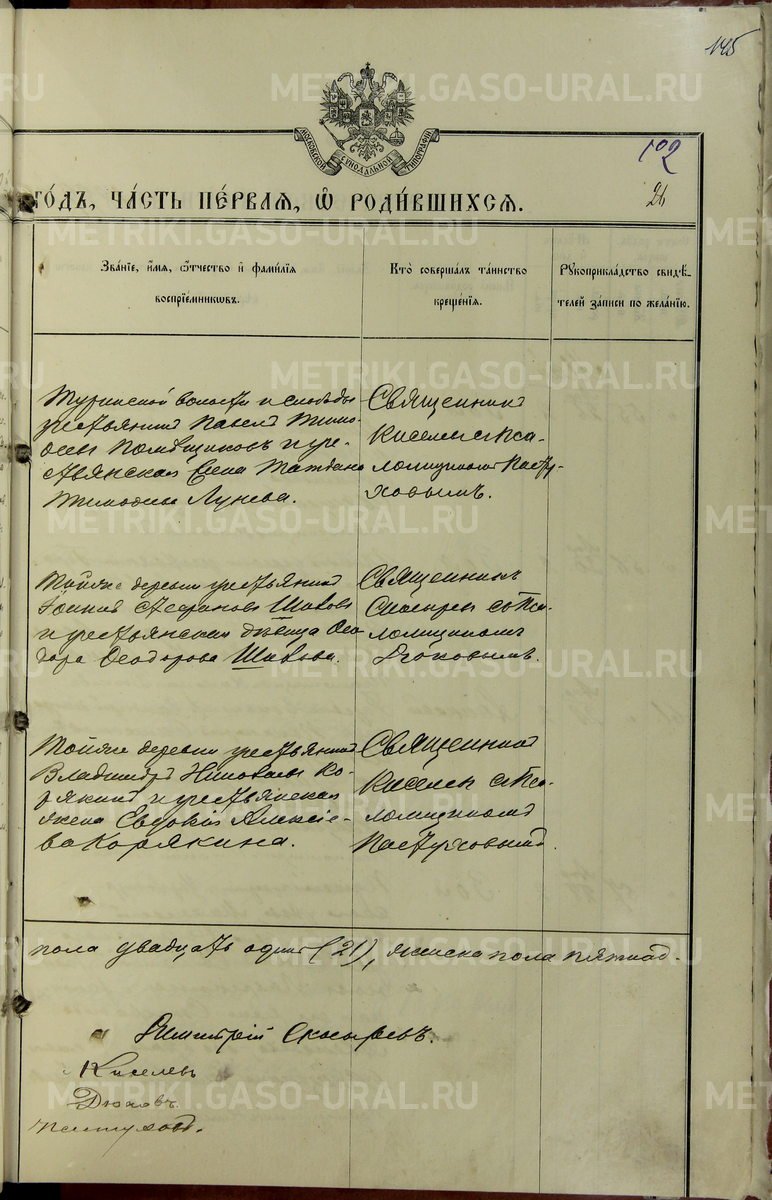 145
МОСКОВСКОЙ СѴНОДАЛЬНОЙ ТИПОГРАФІИ
102
26
ГО́ДЪ, ЧА́СТЬ ПЕ́РВАЯ, Ѿ РОДИ́ВШИХСЯ.
Зва́нїе, и́мя, ѻ҆́тчество и҆ фами́лїя
воспрїе́мникѡвъ.
Кто̀ соверша́лъ та́инство
креще́нїя.
Рꙋкоприкла́дство свидѣ́-
телей за́писи по жела́нїю.
Туринской волости и слободы
крестьянинъ Павелъ Тимо-
феевъ Помѣщиковъ и кре-
стьянская жена Татьяна
Тимофеева Лунева.
Священникъ
Киселевъ с Пса-
ломщикомъ Пасту-
ховымъ.
Тойже деревни крестьянинъ
Іоаннъ Стефановъ Шаховъ
и крестьянская дѣвица Ѳео-
дора Ѳеодорова Шахова.
Священникъ
Скосыревъ со Пса-
ломщикомъ
Дюковымъ.
Тойже деревни крестьянинъ
Владимиръ Николаевъ Ко-
рякинъ и крестьянская
жена Евдокія Алексіе-
ва Корякина.
Священникъ
Киселевъ с Пса-
ломщикомъ
Пастуховымъ.
пола двадцать одинъ (21), женска пола пятнад-
Димитрій Скосыревъ.
Киселевъ
Дюковъ.
Пастуховъ.
METRIKI.GASO-URAL.RU